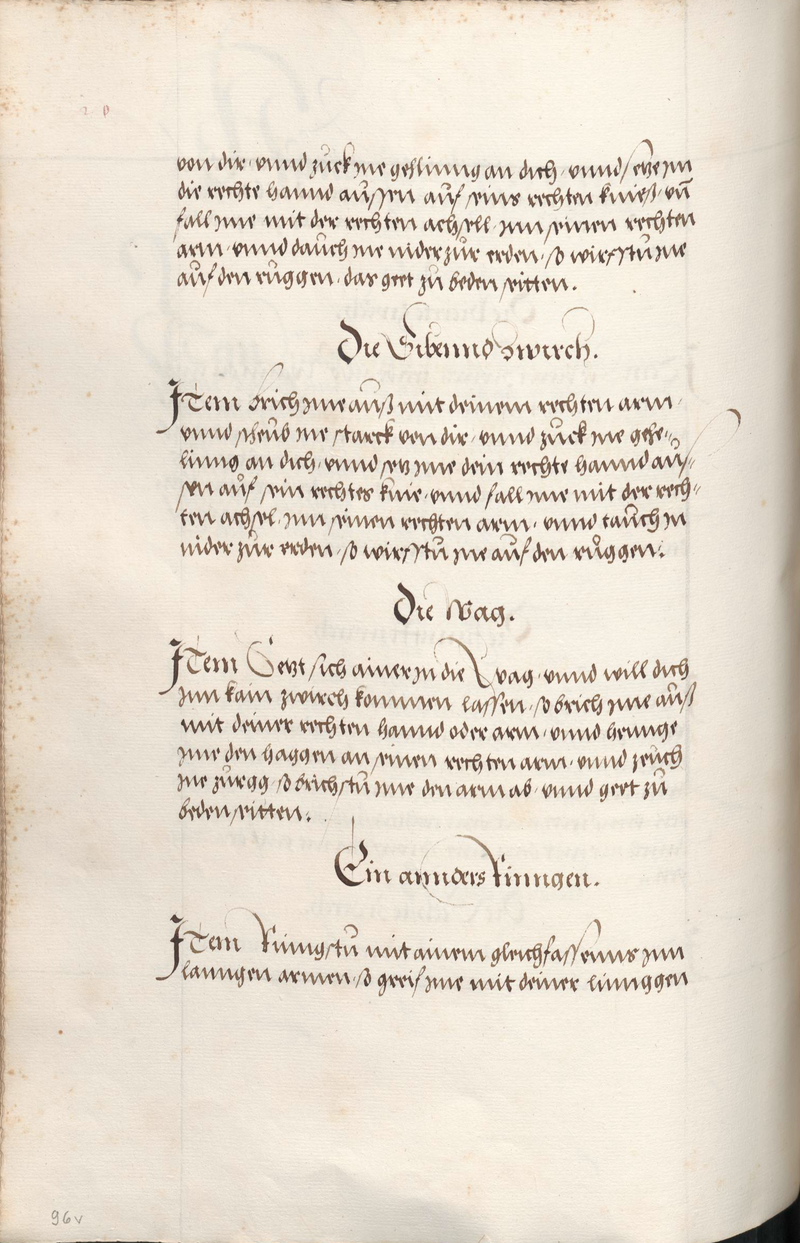 von dir, vnnd zuckh ine gehlinng an dich, vnnd setze im
die rechte hannd aussen auf seins rechten knieß, vn̄
fall ime mit der rechten achsell, inn seinen rechten
arm, vnnd dauch ine nider zur erden, so wirfstu ine
auf den ruggen, das geet zu beden seitten.
Die Sibennd zwirch.
Item Brich ime auß mit deinem rechten arm,
vnnd scheub ine starck von dir, vnnd zuck ine gehe-
linng an dich, vnnd setz ime dein rechte hannd aus-
sen auf sein rechtes knie, vnnd fall ime mit der rech-
ten achsel, inn seinen rechten arm, vnnd tauch in
nider zur erden, so wirfstu ine auf den ruggen.
Die Wag.
Item Setzt sich ainer in die Wag, vnnd will dich
inn kain zwirch kommen lassen, so brich ime auß
mit deiner rechten hannd oder arm, vnnd henng
ime den haggen an seinen rechten arm, vnnd zeuch
ine zurgg, so brichstu ime den arm ab, vnnd geet zu
beden seitten.
Ein annders Ringen.
Item Ringstu mit ainem gleichfassenns inn
lanngen armen, so greif ime mit deiner linnggen
96v